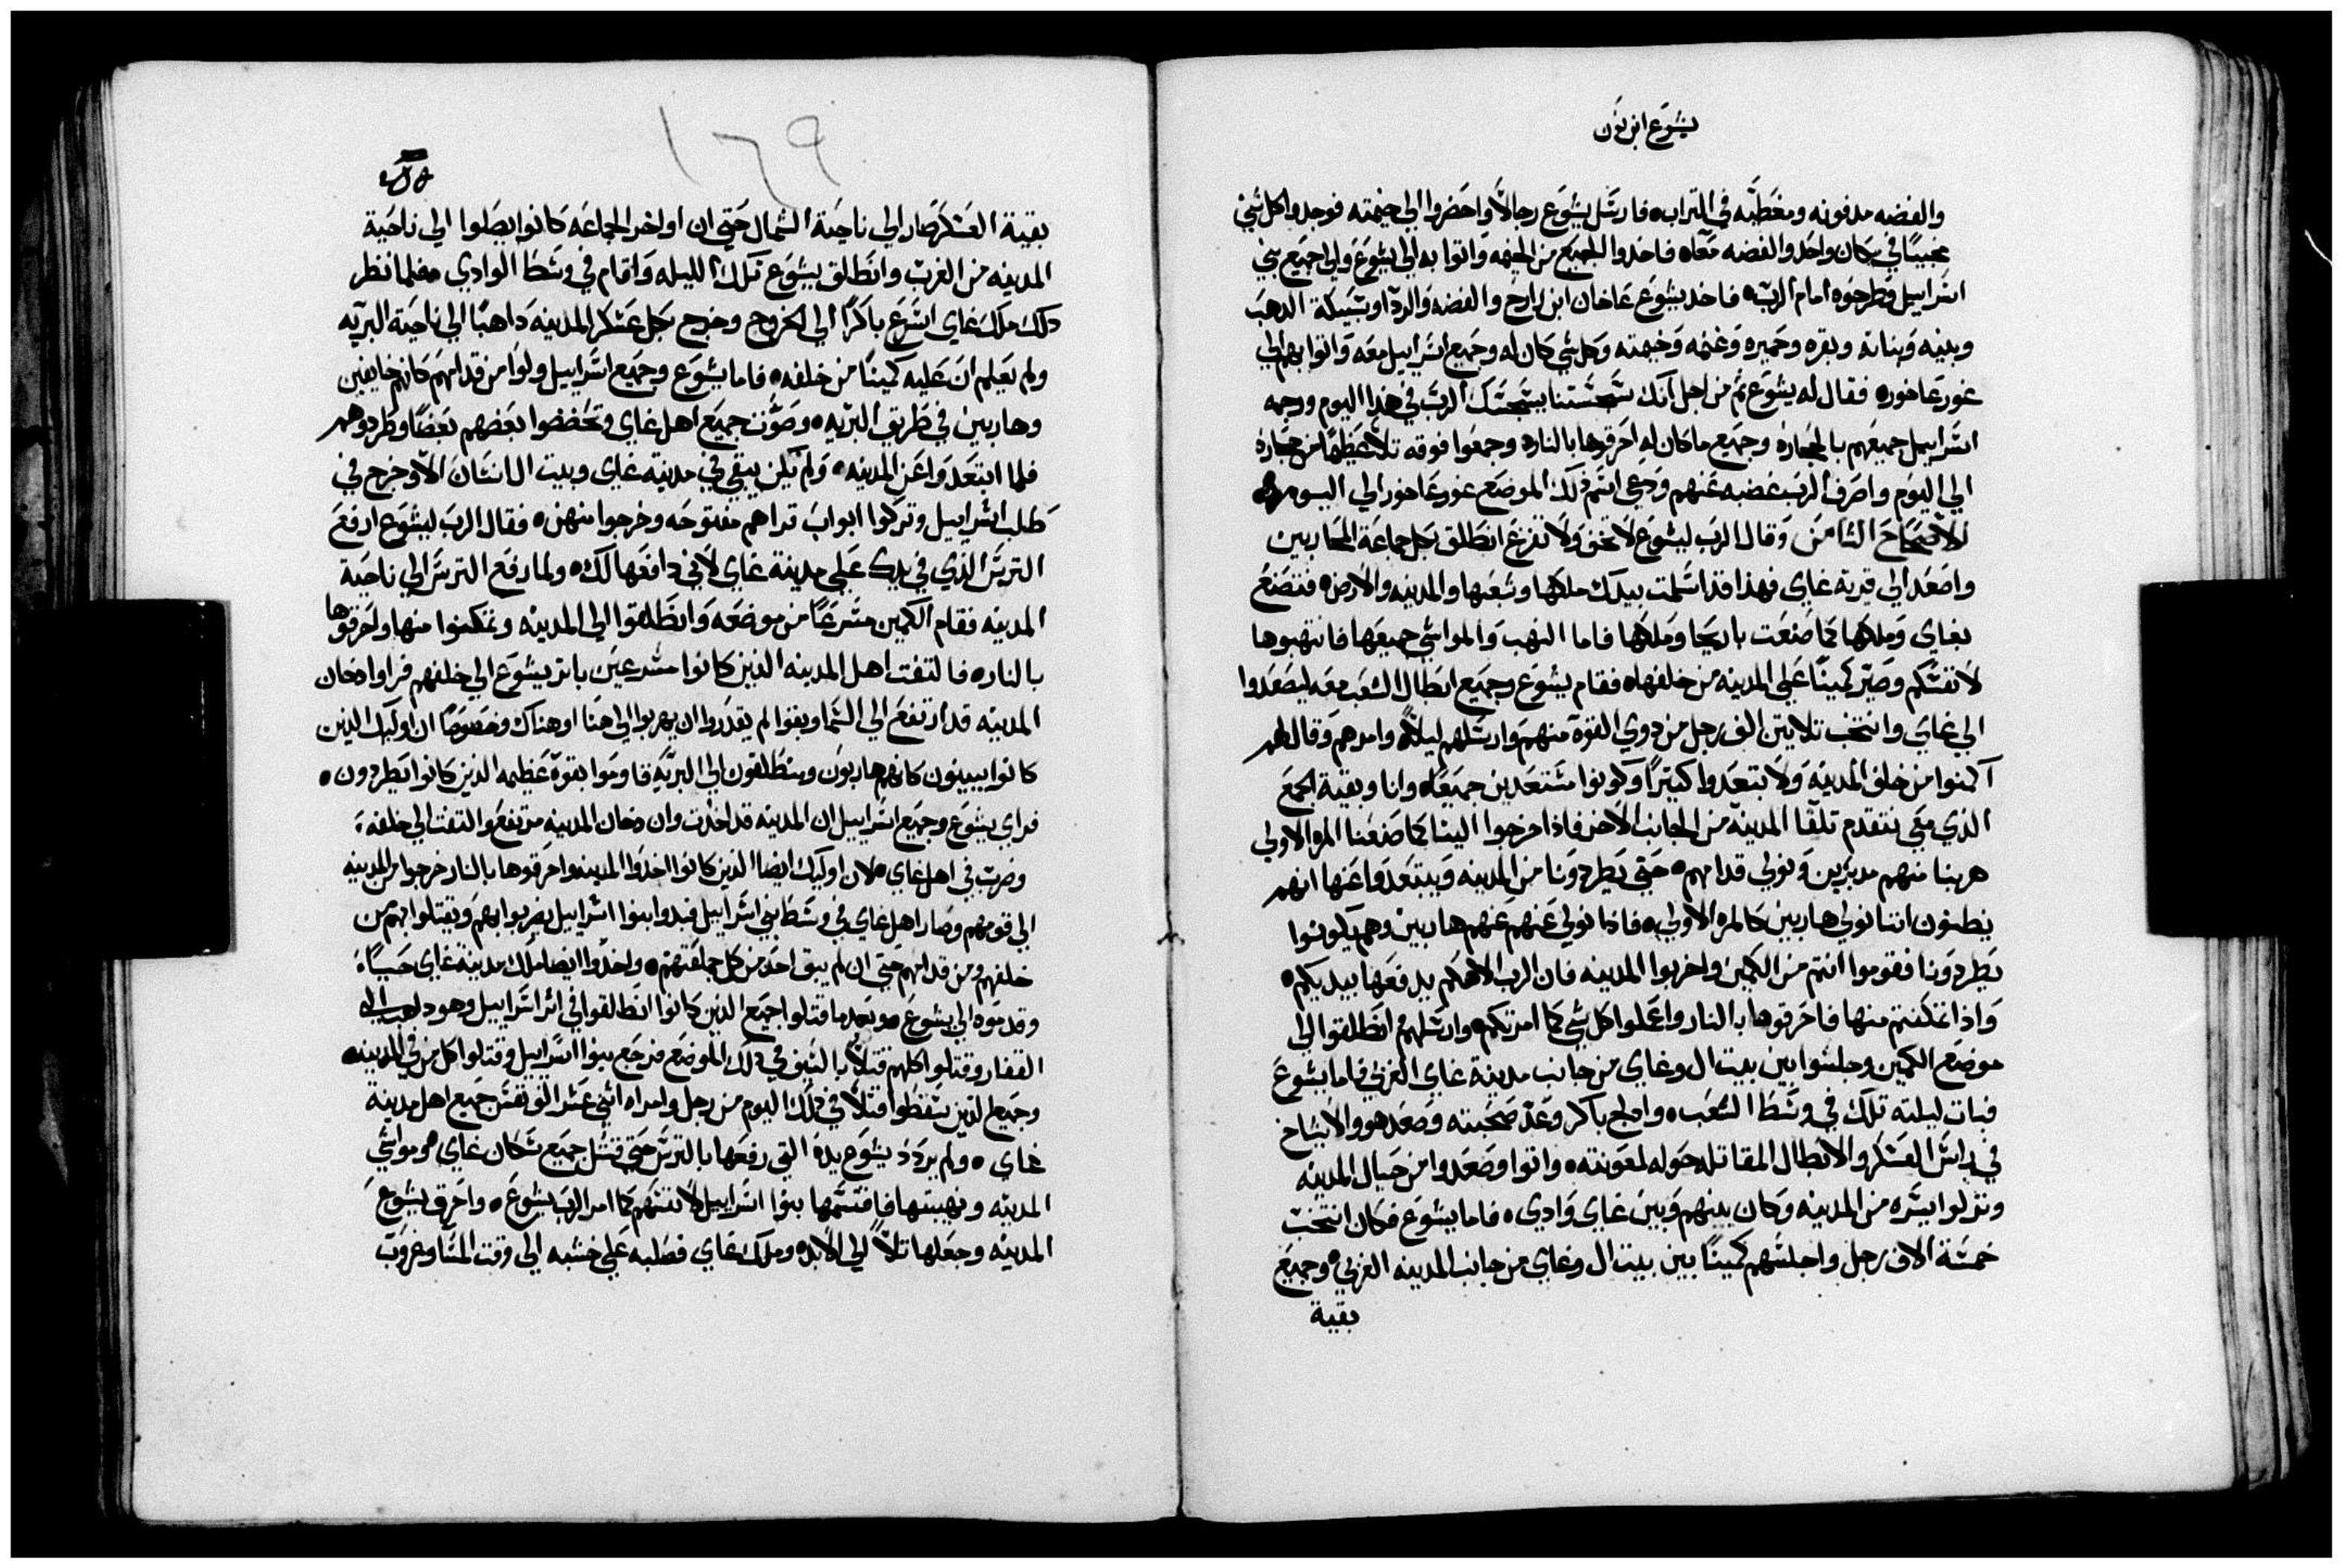 يشوع ابن نون
والفضه مدفونه ومغطيه في التراب فارسل يشوع رجالاً واحضروا الي خيمته فوجدوا كل شي
مخبيًا في مكان واحد والفضه معاه فاخدوا الجميع من الخيمه واتوا به الي يشوع والي جميع بني
اسراييل وطرحوه امام الرب فاخد يشوع عاخان ابن زارح والفضه والردا وسبيكة الدهب
وبنيه وبناته وبقره وحميره وغنمه وخيمته وكل شي كان له وجميع اسراييل معه واتوا بهم الي
غور عاخور فقال له يشوع ثم من اجل انك سجستنا يسجسك الرب في هذا اليوم ورجمه
اسراييل جميعهم بالحجاره وجميع ما كان له احرقوها بالنار وجمعوا فوقه تلاً عظيمًا من حجاره
الي اليوم واصرف الرب غضبه عنهم ودعي اسم ذلك الموضع غور عاخور الي اليوم
الاصحاح الثامن وقال الرب ليشوع لا تخف ولا تفزع انطلق بكل جماعة المحاربين
واصعد الي قرية غاي فهذا قد اسلمت بيدك ملكها وشعبها والمدينه والارض فتصنع
بغاي وملكها كما صنعت باريحا وملكها فاما النهب والمواشي جميعها فانتهبوها
لانفسكم وصير كمينًا علي المدينه من خلفها فقام يشوع وجميع ابطال الشعب معه ليصعدوا
الي غاي وانتخب تلاتين الف رجل من دوي القوة منهم وارسلهم ليلاً وامرهم وقال لهم
اكمنوا من خلف المدينه ولا تبتعدوا كتيرًا وكونوا مستعدين جميعًا وانا وبقية الجمع
الذي معي نتقدم تلقا المدينه من الجانب الاخر فاذا خرجوا الينا كما صنعنا المره الاولي
هربنا منهم مدبرين ونولي قدامهم حتي يطردونا من المدينه ويبتعدوا عنها انهم
يظنون اننا نولي هاربين كالمره الاولي فاذا نولي عنهم عنهم هاربين وهم يكونوا
يطردونا فقوموا انتم من الكمين واخربوا المدينه فان الرب الاهكم يدفعها بيديكم
واذا تمكنتم منها فاحرقوها بالنار واعملوا كل شي كما امرتكم وارسلهم انطلقوا الي
موضع الكمين وجلسوا بين بيت ال وغاي من جانب مدينة غاي الغربي فاما يشوع
فبات ليلته تلك في وسط الشعب وادلج باكر وعد صحبته وصعد هو والاشياخ
في راس العسكر والابطال المقاتله حوله لمعونته واتوا وصعدوا من حيال المدينه
ونزلوا يسره من المدينه وكان بينهم وبين غاي وادي فاما يشوع فكان انتخب
خمسة الاف رجل واجلسهم كمينًا بين بيت ال وغاي من جانب المدينه الغربي وجميع
بقية
١٦٩
بقية العسكر صار الي ناحية الشمال حتي ان اواخر الجماعه كانوا يصلوا الي ناحية
المدينه من الغرب وانطلق يشوع تلك الليله واقام في وسط الوادي فلما نظر
دلك ملك غاي اسرع باكرًا الي الخروج وخرج بكل عسكر المدينه داهبًا الي ناحية البريه
ولم يعلم ان عليه كمينًا من خلفه فاما يشوع وجميع اسراييل ولوا من قدامهم كانهم خايفين
وهاربين في طريق البريه وصوت جميع اهل غاي وتحضضوا بعضهم بعضًا وطردوهم
فلما ابتعدوا عن المدينه ولم يكن يبقي في مدينة غاي وبيت ال انسان الا وخرج في
طلب اسراييل وتركوا ابواب قراهم مفتوحه وخرجوا منهن فقال الرب ليشوع ارفع
الترس الذي في يدك علي مدينة غاي لاني دافعها لك ولما رفع الترس الي ناحية
المدينه فقام الكمين مسرعًا من موضعه وانطلقوا الي المدينه وتمكنوا منها واحرقوها
بالنار فالتفت اهل المدينه الذين كانوا مسرعين باتر يشوع الي خلفهم فراوا دخان
المدينه قد ارتفع الي السما وبقوا لم يقدروا ان يهربوا الي هنا او هناك وخصوصًا ان اوليك الذين
كانوا يبينون كانهم هاربون وينطلقون الي البريه قاوموا بقوة عظيمه الذين كانوا يطردون
فراي يشوع وجميع اسراييل ان المدينه قد اخدت وان دخان المدينه مرتفع والتفت الي خلفه
وضرب في اهل غاي لان اوليك ايضا الذين كانوا اخدوا المدينه واحرقوها بالنار خرجوا من المدينه
الي قومهم وصار اهل غاي في وسط بني اسراييل فبدوا بنوا اسراييل يضربوا بهم ويقتلوا بهم من
خلفهم ومن قدامهم حتي ان لم يبق احد من كل جماعتهم واخدوا ايضا ملك مدينة غاي حيًا
وقدموه الي يشوع وبعدما قتلوا جميع الذين كانوا انطلقوا في اثر اسراييل وهو داهب الي
القفار وقتلوا كلهم قتلاً بالسيف في ذلك الموضع فرجع بنوا اسراييل وقتلوا كل من في المدينه
وجميع الذين سقطوا قتلا في ذلك اليوم من رجل وامراه اثني عشر الف نفس جميع اهل مدينة
غاي ولم يردد يشوع يده التي رفعها بالترس حتي قتل جميع سكان غاي ومواشي
المدينه ونهيبتها فاقتسمها بنوا اسراييل لانفسهم كما امر الرب يشوع واحرق يشوع
المدينه وجعلها تلاً الي الابد وملك غاي فصلبه علي خشبه الي وقت المسا وغروب